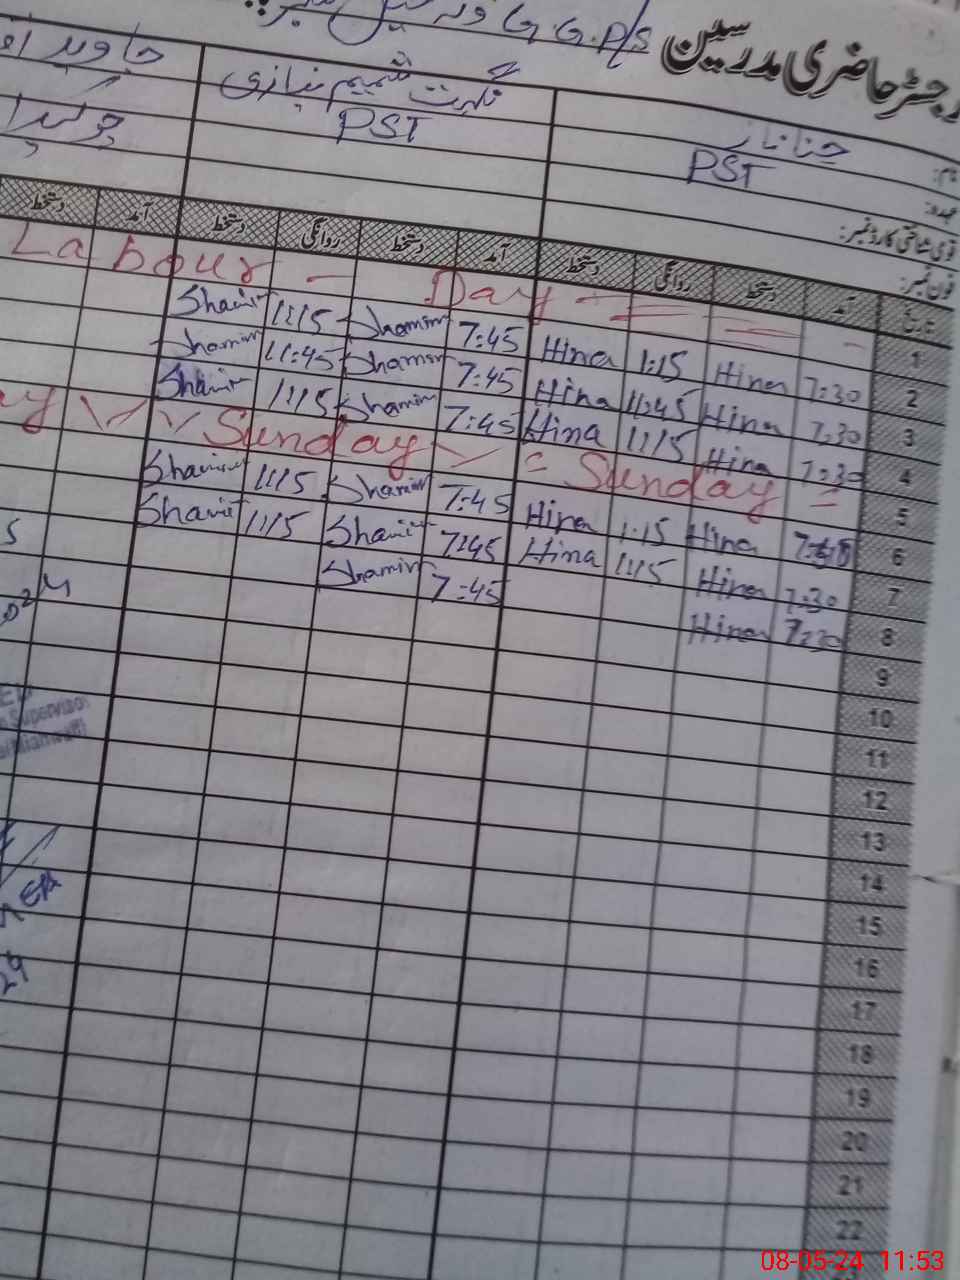 رجسٹر حاضری مدرسین G.G.P/S
نام: حنا ناز نگہت شمیم نیازی جاوید
عہدہ: PST PST چوکیدار
قومی شناختی کارڈ نمبر:
فون نمبر:
تاریخ آمد دستخط روانگی دستخط آمد دستخط روانگی دستخط آمد دستخط
1 Labour - Day
2 7:30 Hina 1:15 Hina 7:45 Shamim 1:15 Shamim
3 7:30 Hina 11:45 Hina 7:45 Shamim 11:45 Shamim
4 7:30 Hina 1:15 Hina 7:45 Shamim 1:15 Shamim
5 Sunday = Sunday =
6 Hina 1:15 Hina 7:45 Shamim 1:15 Shamim
7 7:30 Hina 1:15 Hina 7:45 Shamim 1:15 Shamim
8 7:30 Hina 7:45 Shamim
9
10
11
12
13
14
15
16
17
18
19
20
21
22
Supervisor
08-05-24 11:53